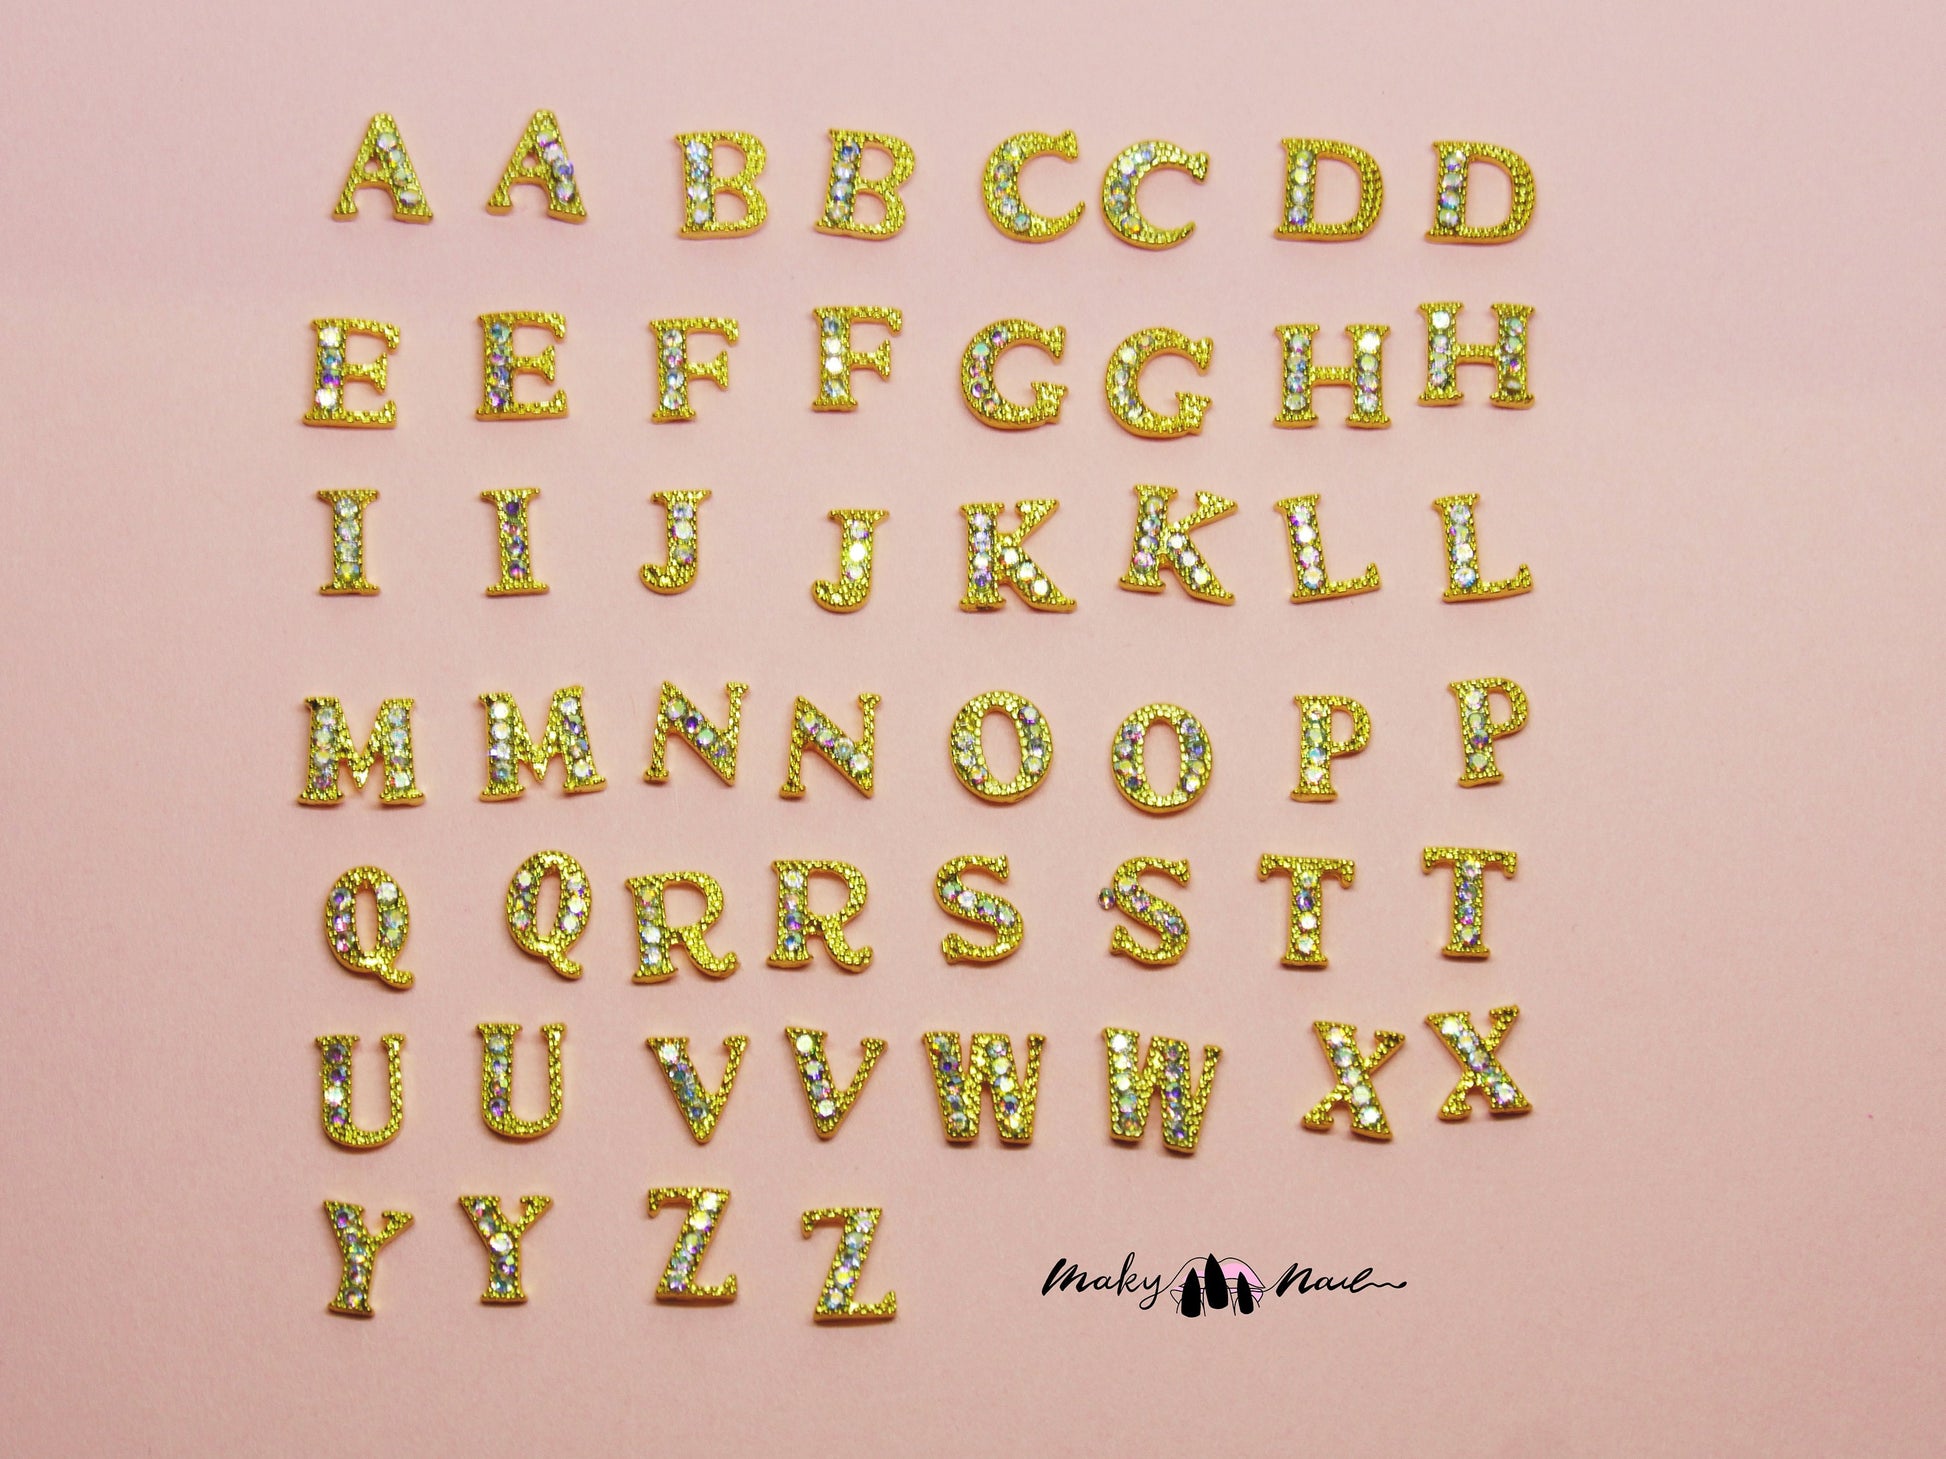 A A B B C C D D
E E F F G G H H
I I J J K K L L
M M N N O O P P
Q Q R R S S T T
U U V V W W X X
Y Y Z Z
Maky Nail